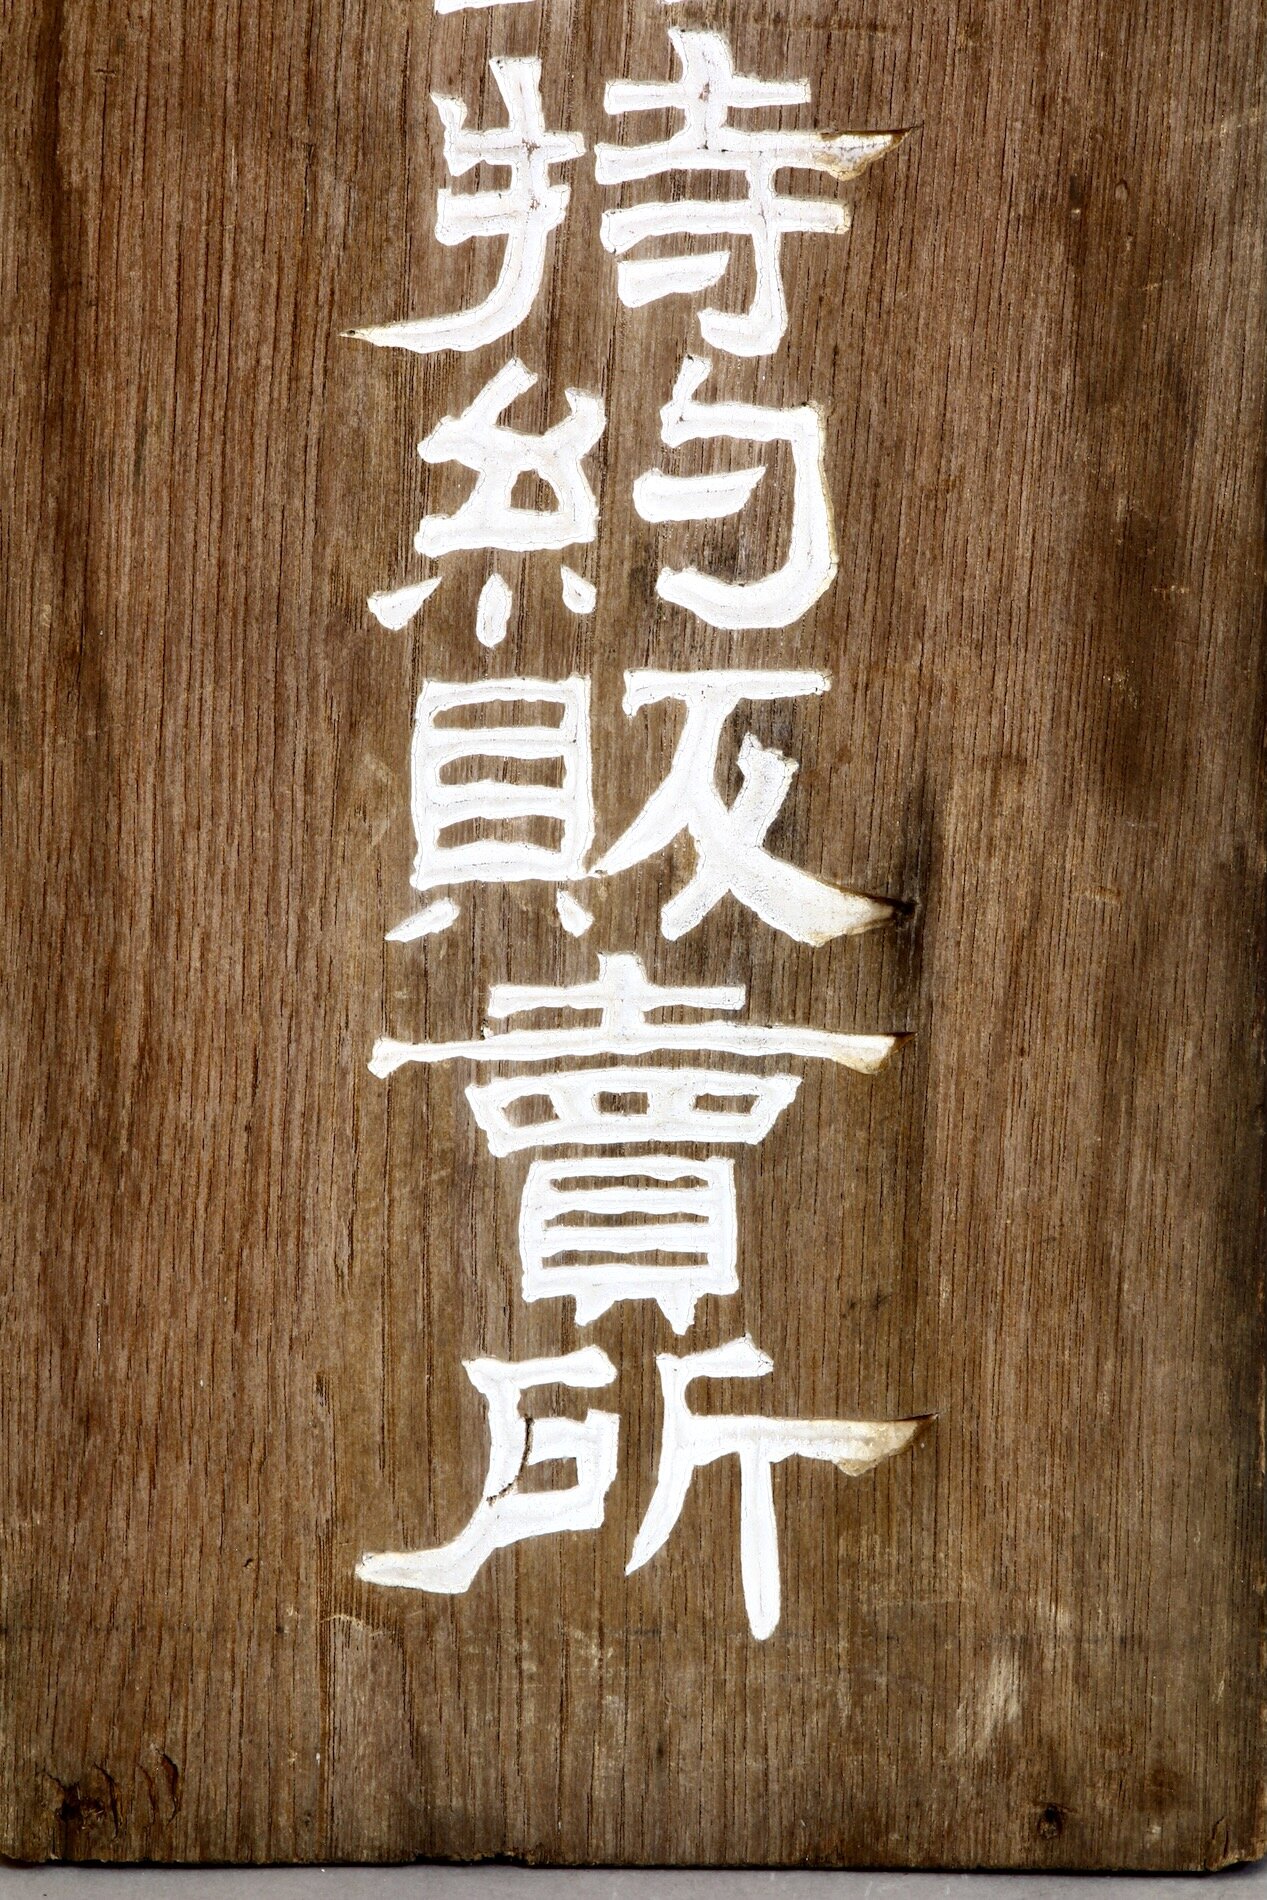 特約販賣所